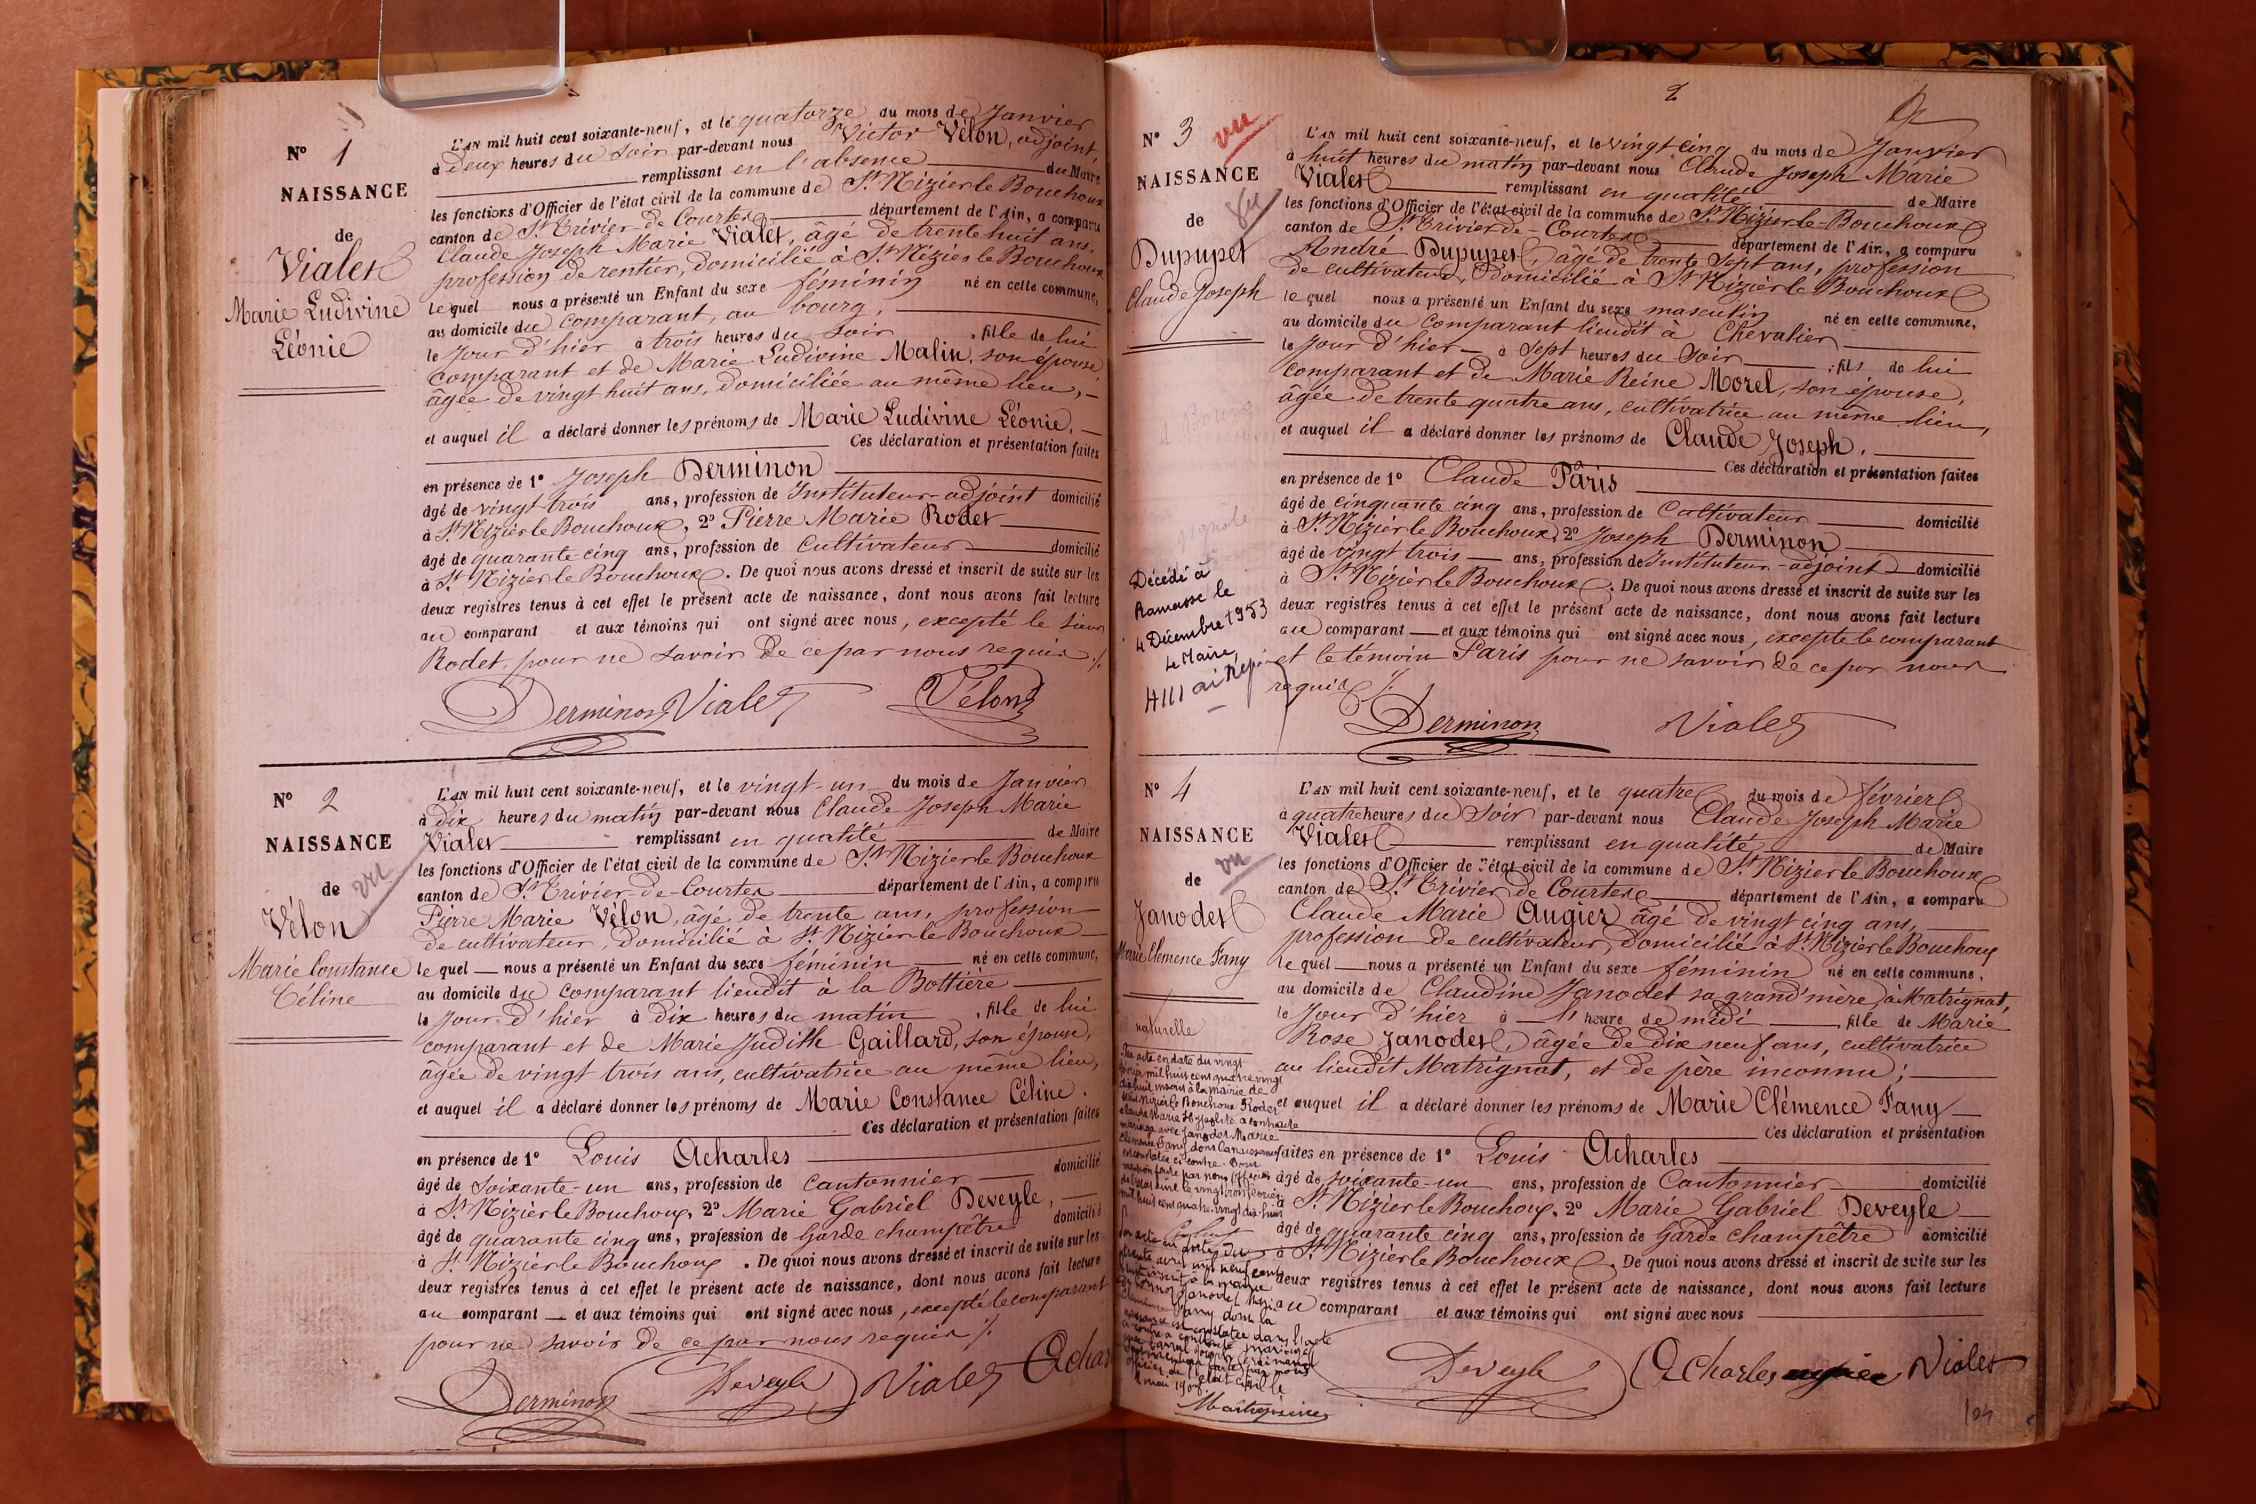 N° 1
NAISSANCE
de
Vialet
Marie Ludivine
Léonie
L'AN mil huit cent soixante-neuf, et le quatorze du mois de Janvier
à deux heures du soir par-devant nous Victor Vélon, adjoint,
remplissant en l'absence du Maire
les fonctions d'Officier de l'état civil de la commune de St Nizier le Bouchoux
canton de St Trivier de Courtes département de l'Ain, a comparu
Claude Joseph Marie Vialet, âgé de trente huit ans,
profession de rentier, domicilié à St Nizier le Bouchoux
le quel nous a présenté un Enfant du sexe féminin né en cette commune,
au domicile du comparant, au bourg,
le jour d'hier à trois heures du soir , fille de lui
comparant et de Marie Ludivine Malin, son épouse
âgée de vingt huit ans, domiciliée au même lieu,
et auquel il a déclaré donner les prénoms de Marie Ludivine Léonie.
Ces déclaration et présentation faites
en présence de 1° Joseph Derminon
âgé de vingt trois ans, profession de Instituteur-adjoint domicilié
à St Nizier le Bouchoux, 2° Pierre Marie Rodet
âgé de quarante-cinq ans, profession de cultivateur domicilié
à St Nizier le Bouchoux. De quoi nous avons dressé et inscrit de suite sur les
deux registres tenus à cet effet le présent acte de naissance, dont nous avons fait lecture
au comparant et aux témoins qui ont signé avec nous, excepté le sieur
Rodet, pour ne savoir de ce par nous requis ./.
Derminon Vialet Vélon
N° 2
NAISSANCE
de
vu
Vélon
Marie Constance
Céline
L'AN mil huit cent soixante-neuf, et le vingt-un du mois de Janvier
à dix heures du matin par-devant nous Claude Joseph Marie
Vialet remplissant en qualité de Maire
les fonctions d'Officier de l'état civil de la commune de St Nizier le Bouchoux
canton de St Trivier-de-Courtes département de l'Ain, a comparu
Pierre Marie Vélon, âgé de trente ans, profession
de cultivateur, domicilié à St Nizier le Bouchoux
le quel nous a présenté un Enfant du sexe féminin né en cette commune,
au domicile du comparant lieudit à la Bottière
le jour d'hier à dix heures du matin , fille de lui
comparant et de Marie Judith Gaillard, son épouse,
âgée de vingt trois ans, cultivatrice au même lieu,
et auquel il a déclaré donner les prénoms de Marie Constance Céline.
Ces déclaration et présentation faites
en présence de 1° Louis Acharles
âgé de soixante-un ans, profession de cantonnier domicilié
à St Nizier le Bouchoux, 2° Marie Gabriel Deveyle,
âgé de quarante cinq ans, profession de Garde champêtre domicilié
à St Nizier le Bouchoux . De quoi nous avons dressé et inscrit de suite sur les
deux registres tenus à cet effet le présent acte de naissance, dont nous avons fait lecture
au comparant et aux témoins qui ont signé avec nous, excepté le comparant
pour ne savoir de ce par nous requis ./.
Derminon Deveyle Vialet Achar
2
N° 3
vu
NAISSANCE
de
vu
Dupupet
Claude Joseph
Décédé à
Ramasse le
4 Décembre 1953
Le Maire,
L'AN mil huit cent soixante-neuf, et le vingt cinq du mois de Janvier
à huit heures du matin par-devant nous Claude Joseph Marie
Vialet remplissant en qualité de Maire
les fonctions d'Officier de l'état civil de la commune de St Nizier le-Bouchoux
canton de St Trivier de-Courtes département de l'Ain, a comparu
André Dupupet, âgé de trente sept ans, profession
de cultivateur, domicilié à St Nizier le Bouchoux
le quel nous a présenté un Enfant du sexe masculin né en cette commune,
au domicile du comparant lieudit à Chevalier
le jour d'hier à sept heures du soir ; fils de lui
comparant et de Marie Reine Morel, son épouse,
âgée de trente quatre ans, cultivatrice au même lieu,
et auquel il a déclaré donner les prénoms de Claude Joseph.
Ces déclaration et présentation faites
en présence de 1° Claude Pâris
âgé de cinquante cinq ans, profession de Cultivateur domicilié
à St Nizier le Bouchoux, 2° Joseph Derminon
âgé de vingt trois ans, profession de Instituteur-adjoint domicilié
à St Nizier le Bouchoux. De quoi nous avons dressé et inscrit de suite sur les
deux registres tenus à cet effet le présent acte de naissance, dont nous avons fait lecture
au comparant et aux témoins qui ont signé avec nous, excepté le comparant
et le témoin Paris pour ne savoir de ce par nous
requis ./.
Derminon Vialet
N° 4
NAISSANCE
de
vu
Janodet
Marie Clémence Fany
naturelle
L'AN mil huit cent soixante-neuf, et le quatre du mois de février
à quatre heures du soir par-devant nous Claude Joseph Marie
Vialet remplissant en qualité de Maire
les fonctions d'Officier de l'état civil de la commune de St Nizier le Bouchoux
canton de St Trivier de Courtes département de l'Ain, a comparu
Claude Marie Augier âgé de vingt cinq ans,
profession de cultivateur, domicilié à St Nizier le Bouchoux
le quel nous a présenté un Enfant du sexe féminin né en cette commune,
au domicile de Claudine Janodet sa grand'mère, à Matrignat,
le jour d'hier à 1 heure de midi , fille de Marie
Rose Janodet, âgée de dix neuf ans, cultivatrice
au lieudit Matrignat, et de père inconnu;
et auquel il a déclaré donner les prénoms de Marie Clémence Fany
Ces déclaration et présentation
faites en présence de 1° Louis Acharles
âgé de soixante-un ans, profession de Cantonnier domicilié
à St Nizier le Bouchoux, 2° Marie Gabriel Deveyle
âgé de quarante cinq ans, profession de Garde champêtre domicilié
à St Nizier le Bouchoux. De quoi nous avons dressé et inscrit de suite sur les
deux registres tenus à cet effet le présent acte de naissance, dont nous avons fait lecture
au comparant et aux témoins qui ont signé avec nous
Deveyle Acharles Vialet
Par acte en date du vingt
mil huit cent quatre vingt
dix huit inscrit à la mairie de
Saint Nizier le Bouchoux Rodet
Claude Marie Hyppolite a contracté
mariage avec Janodet Marie
Clémence Fany dont la naissance
est constatée ci-contre. Pour
mention faite par nous officier
de l'état civil le vingt trois février
mil huit cent quatre vingt dix huit
Par acte en date du
trente avril mil neuf cent
inscrit à la mairie
Janodet Marie
Clémence Fany dont la
naissance est constatée dans l'acte
ci-contre a contracté mariage
avec
mention faite par nous
officier de l'état civil le
4 mai 190